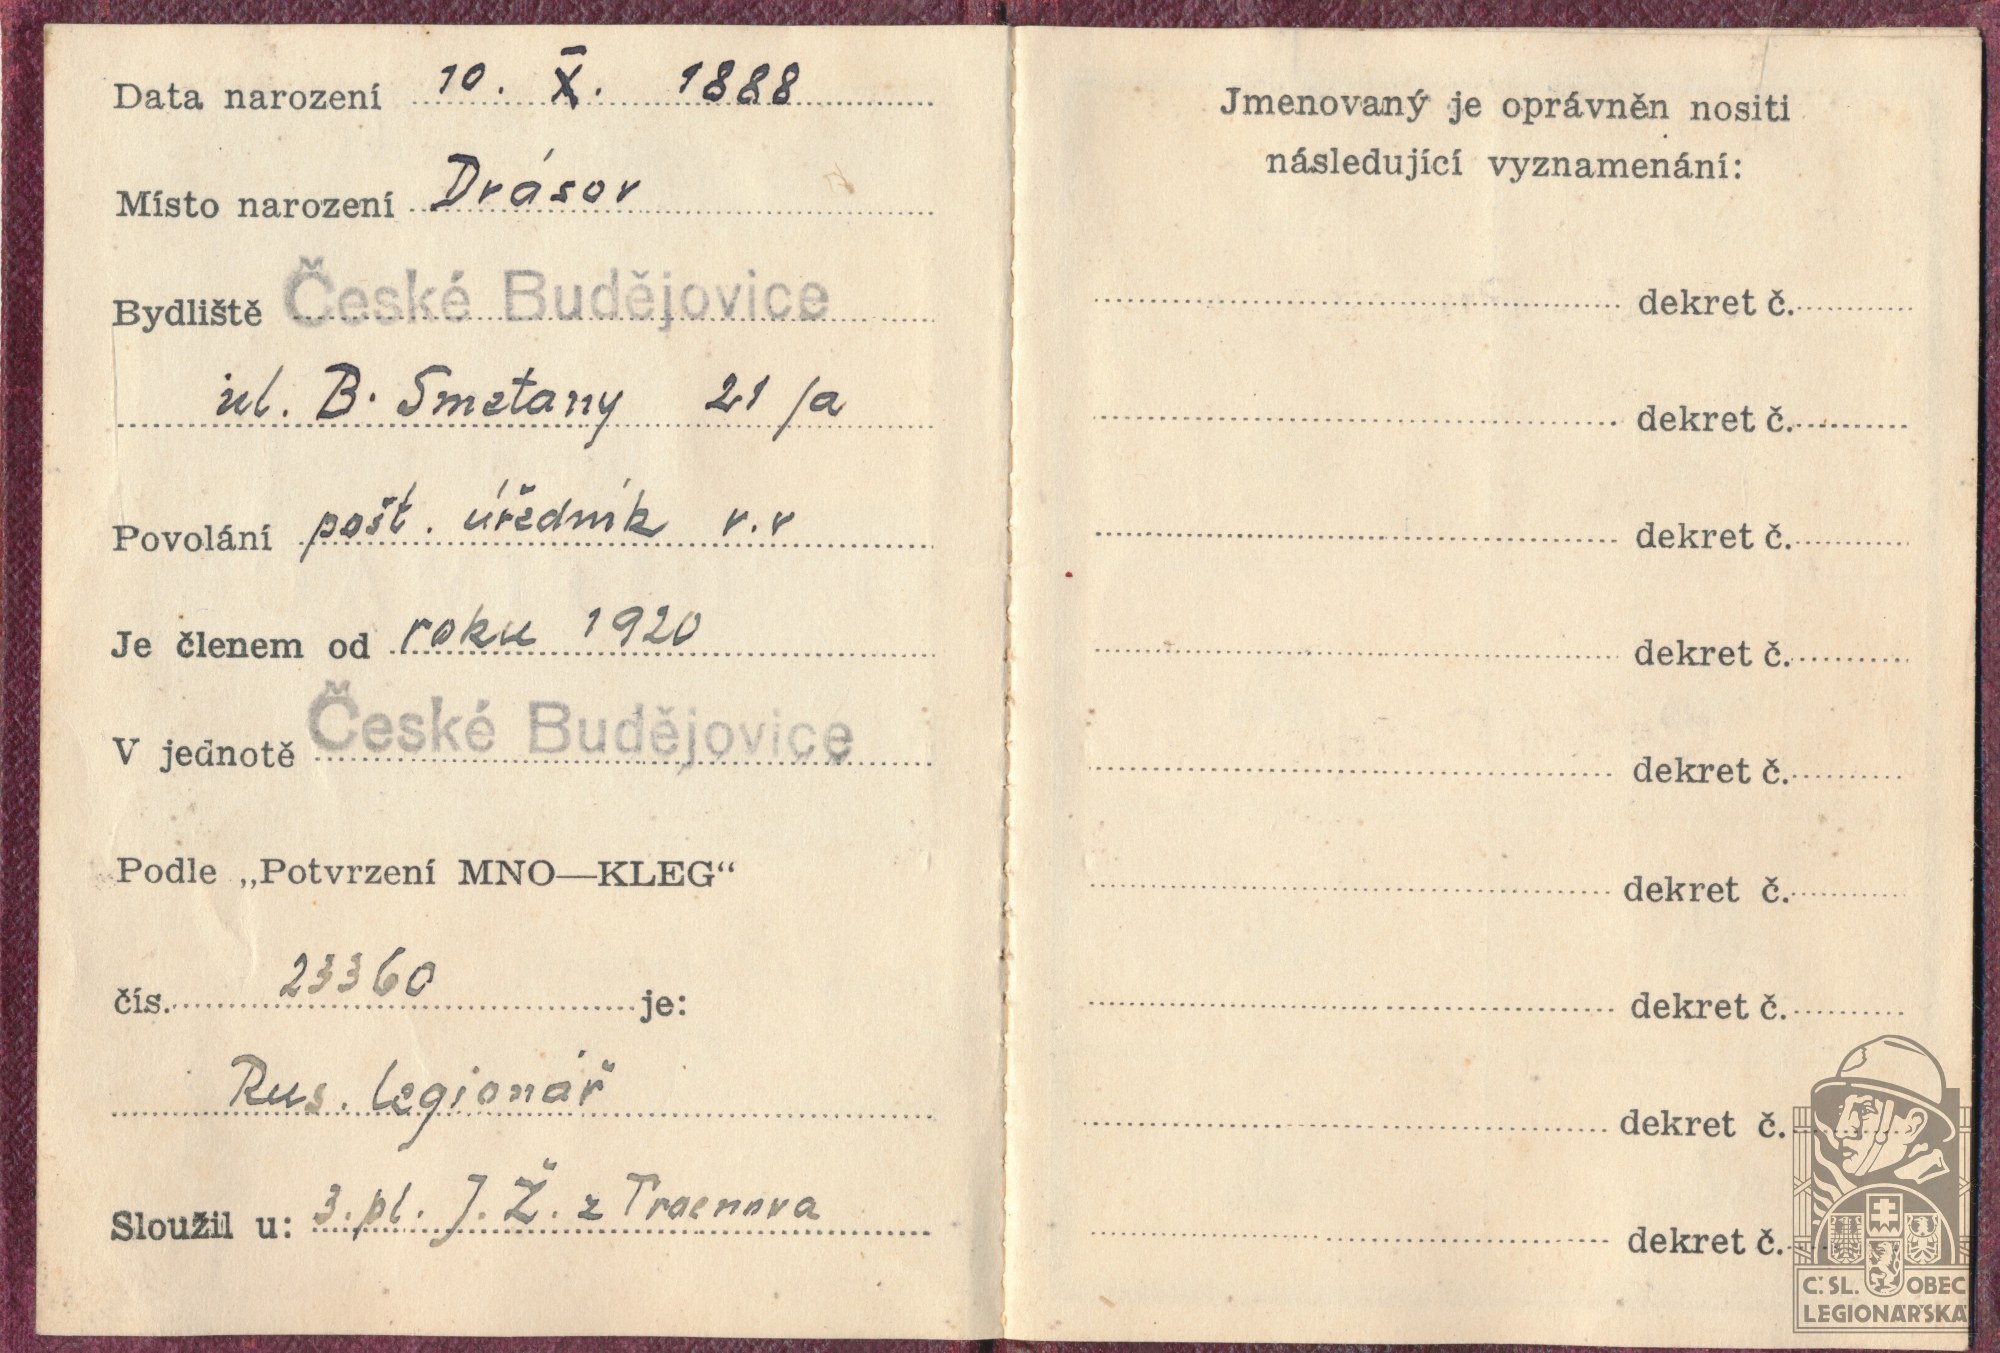 Data narození 10. X. 1888
Místo narození Drásov
Bydliště České Budějovice
ul. B. Smetany 21/a
Povolání pošt. úředník v.v
Je členem od roku 1920
V jednotě České Budějovice
Podle „Potvrzení MNO—KLEG“
čís. 23360 je:
Rus. legionář
Sloužil u: 3. pl. J. Ž. z Trocnova
Jmenovaný je oprávněn nositi
následující vyznamenání:
dekret č.
dekret č.
dekret č.
dekret č.
dekret č.
dekret č.
dekret č.
dekret č.
dekret č.
Č.SL. OBEC
LEGIONÁŘSKÁ